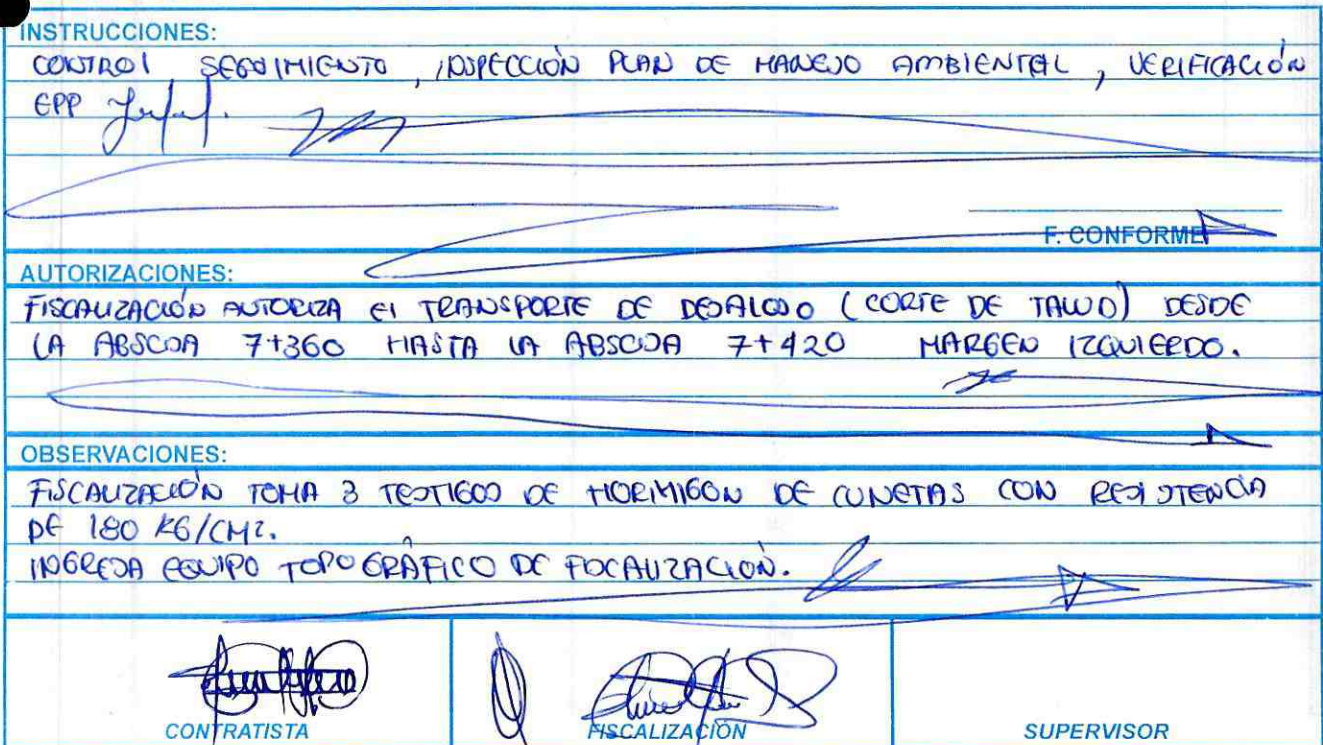 INSTRUCCIONES:
CONTROL, SEGUIMIENTO, INSPECCIÓN PLAN DE MANEJO AMBIENTAL, VERIFICACIÓN
EPP
F. CONFORME
AUTORIZACIONES:
FISCALIZACIÓN AUTORIZA El TRANSPORTE DE DESALOJO (CORTE DE TALUD) DESDE
LA ABSCISA 7+360 HASTA LA ABSCISA 7+420 MARGEN IZQUIERDO.
OBSERVACIONES:
FISCALIZACIÓN TOMA 3 TESTIGOS DE HORMIGÓN DE CUNETAS CON RESISTENCIA
DE 180 KG/CM2.
INGRESA EQUIPO TOPOGRÁFICO DE FISCALIZACIÓN.
CONTRATISTA
FISCALIZACIÓN
SUPERVISOR